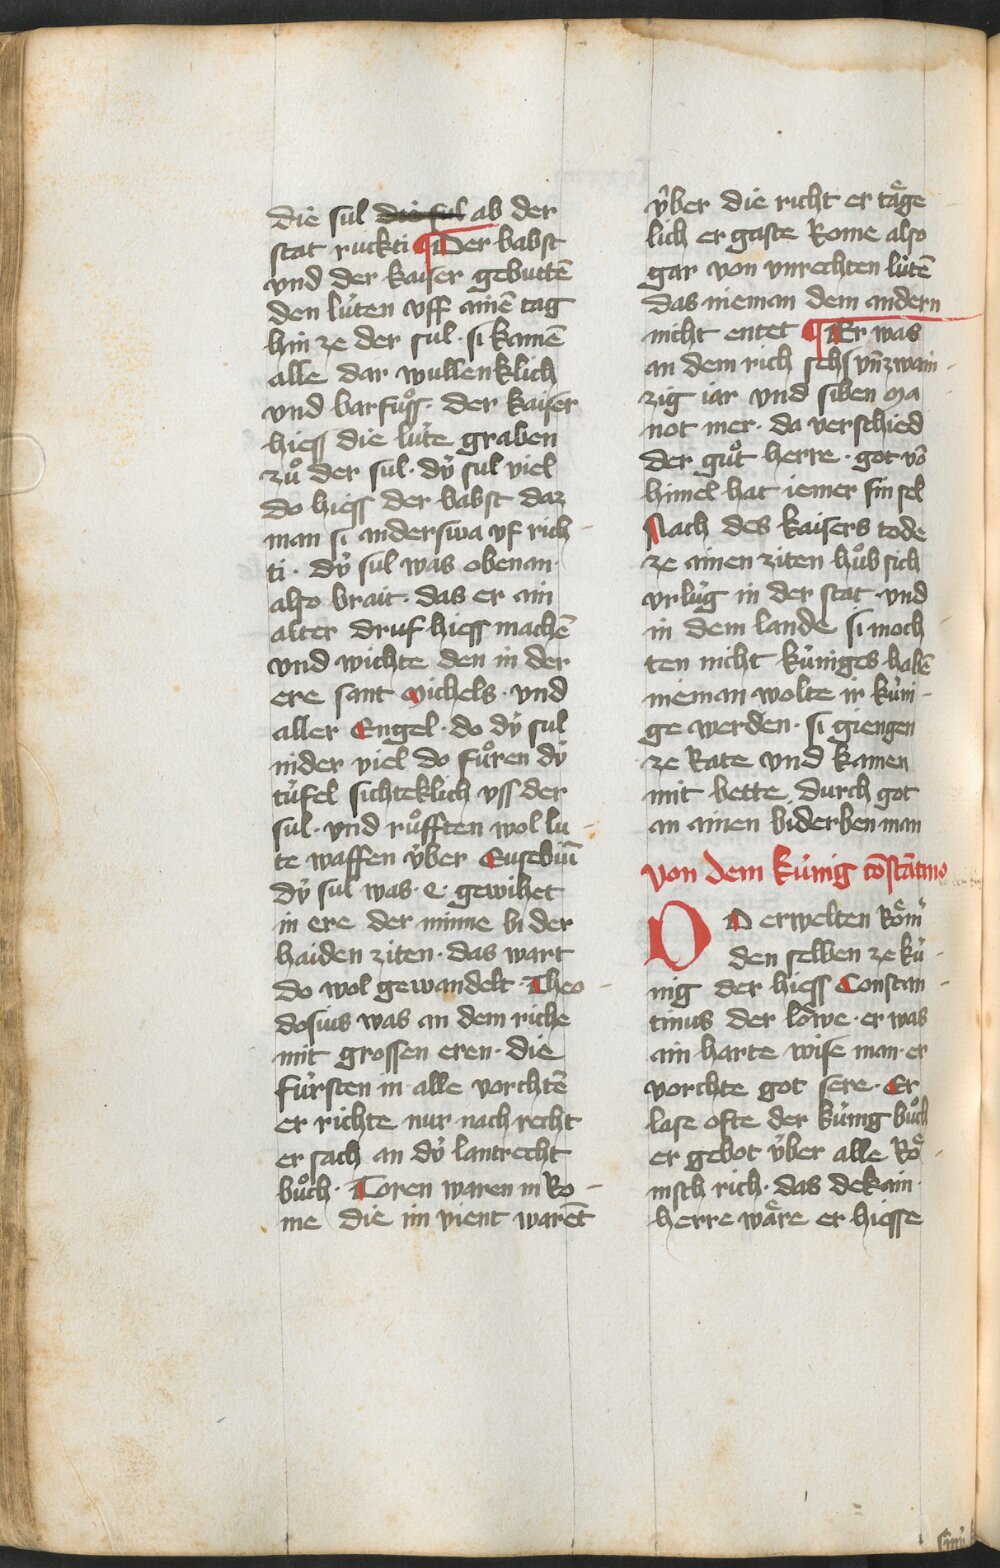 die sul ab der
stat ruckti ¶ Der babst
vnd der kaiser gebuttē
den lúten vff ainē tag
hin ze der sul · si kamē
alle dar wullenklich
vnd barfuͦss · der kaiser
hiess die lúte graben
zuͦ der sul · dẏ sul viel
do hiess der babst daz
man si anderswa vf rich-
ti · dẏ sul was obenan ·
also brait · das er ain
alter druf hiess machē
vnd wichte den in der
ere sant Michels · vnd
aller Engel · do dẏ sul
nider viel do fuͦren dẏ
túfel sichteklich vss der
sul · vnd ruͦfften wol lu-
te waffen v́ber Eusebiū
dẏ sul was · e · gewihet
in ere der minne bi der
haiden ziten · das wart
do wol gewandelt · Theo-
dosius was an dem riche
mit grossen eren · die
fúrsten in alle vorchtē
er richte nur nach recht
er sach an dẏ lantrecht
buͦch · Toren waren in Ro-
me die im vient warēt
v́ber die richt er taͤge
lich er gaste Rome also
gar von vnrechten lútē
das nieman dem andern
nicht entet ¶ Er was
an dem rich sehs vn̄ zwain-
zig iar vnd siben ma
not mer · da verschied
der guͦt herre · got vō
himel hat iemer sin sel
Nach des kaisers tode
ze ainen ziten huͦb sich
vrlúg in der stat · vnd
in dem lande si moch
ten nicht kúniges habē
nieman wolte ir kúni-
ge werden · si giengen
ze Rate vnd kamen
mit bette durch got
an ainen biderben man
von dem kúnig cōstātino
DO erwelten Roͤm̄
den selben ze kú-
nig der hiess Constan-
tinus der loͤwe · er was
ain harte wise man · er
vorchte got sere · Er
lase ofte der kúnig buͦch
er gebot v́ber alle Roͤ-
misch rich · das dekain ·
herre waͤre er hiesse